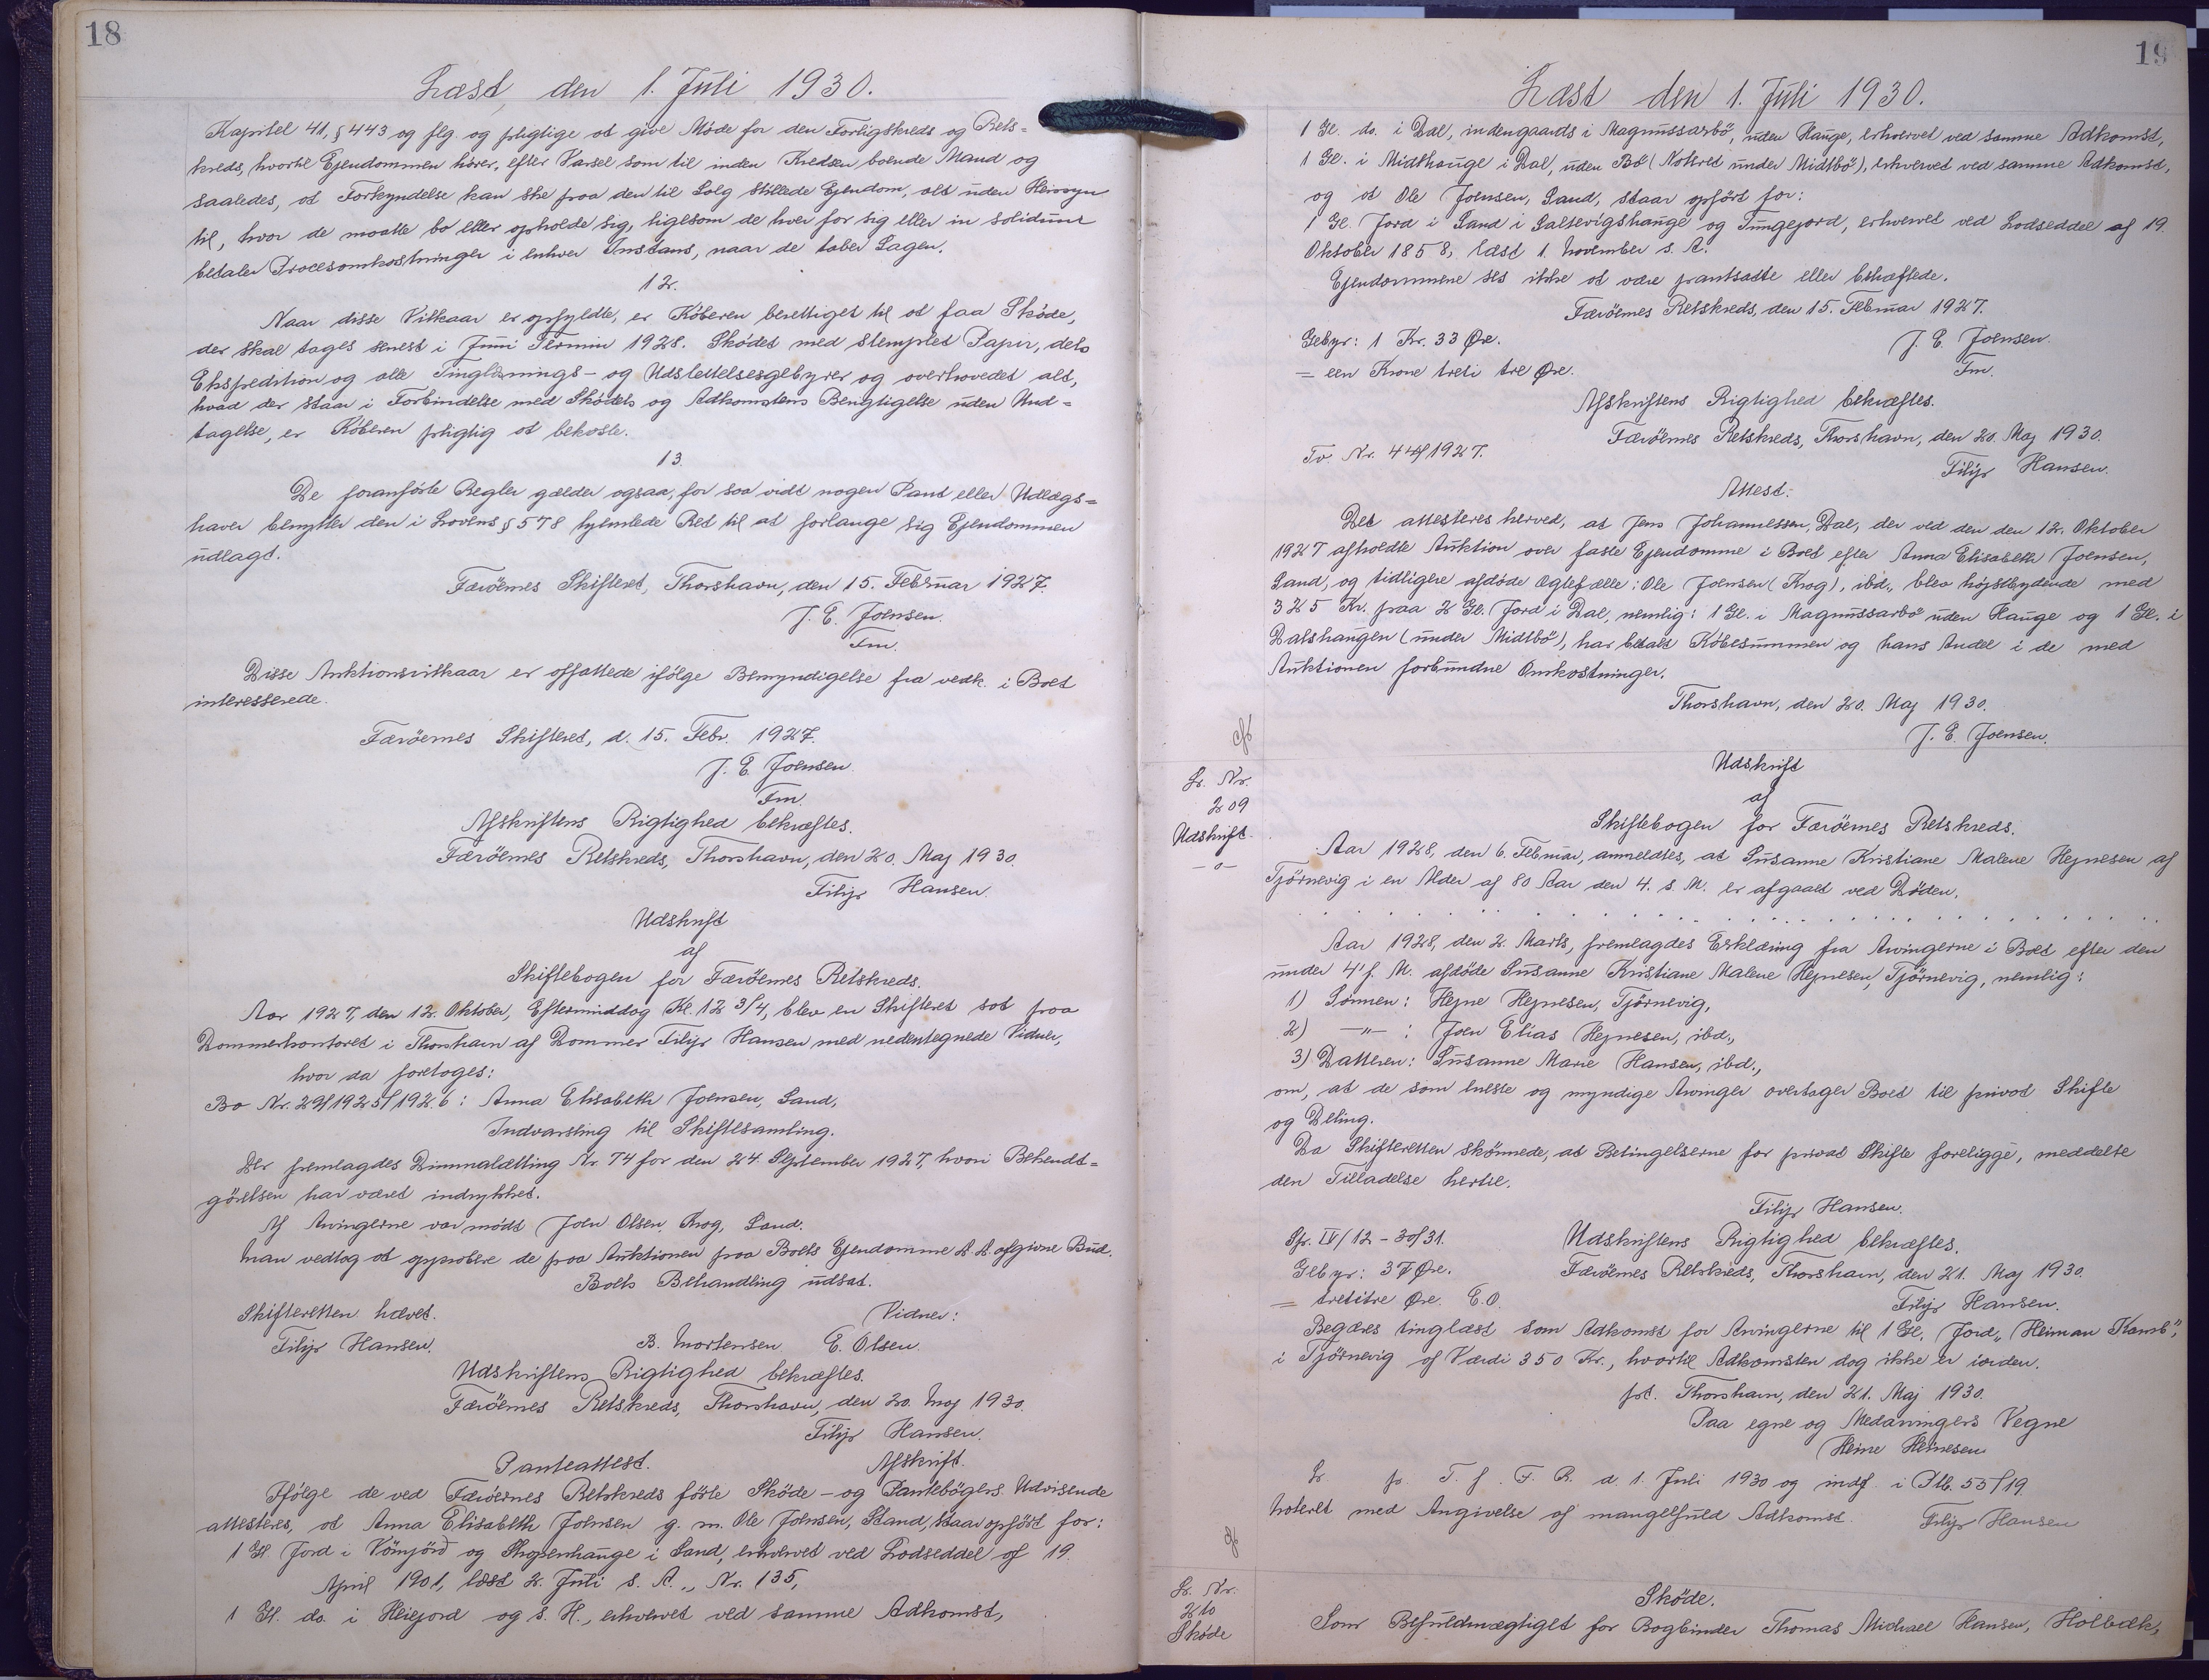 18
Læst, den 1. Juli 1930.
Kapitel 41, § 443 og flg. og pligtige at give Møde for den Forligskreds og Rets=
kreds, hvortil Ejendommen hører, efter Varsel som til inden Kredsen boende Mand og
saaledes, at Forkyndelse kan ske paa den til Salg stillede Ejendom, alt uden Hensyn
til, hvor de maatte bo eller opholde sig, ligesom de hver for sig eller in solidum
betaler Procesomkostninger i enhver Instans, naar de taber Sagen.
12.
Naar disse Vilkaar er opfyldte, er Köberen berettiget til at faa Sköde,
der skal tages senest i Juni Termin 1928. Sködet med stemplet Papir, dets
Ekspedition og alle Tinglæsnings- og Udslettelsesgebyrer og overhovedet alt,
hvad der staar i Forbindelse med Sködets og Adkomstens Berigtigelse uden Und=
tagelse, er Köberen pligtig at bekoste.
13.
De foranförte Regler gælder ogsaa, for saa vidt nogen Pant eller Udlægs=
haver benytter den i Lovens § 578 hjemlede Ret til at forlange sig Ejendommen
udlagt.
Færöernes Skifteret, Thorshavn, den 15. Februar 1927.
J. E. Joensen.
Fm.
Disse Auktionsvilkaar er affattede ifölge Bemyndigelse fra vedk. i Boet
interesserede.
Færöernes Skifteret, d. 15. Febr. 1927.
J. E. Joensen.
Fm.
Afskriftens Rigtighed bekræftes.
Færöernes Retskreds, Thorshavn, den 20. Maj 1930.
Filip Hansen.
Udskrift
af
Skiftebogen for Færöernes Retskreds.
Aar 1927, den 12. Oktober, Eftermiddag Kl. 12 3/4, blev en Skifteret sat paa
Dommerkontoret i Thorshavn af Dommer Filip Hansen med nedentegnede Vidner,
hvor da foretoges:
Bo Nr. 29/1925/1926: Anna Elisabeth Joensen, Sand,
Indvarsling til Skiftesamling.
Der fremlagdes Dimmalætting Nr. 74 for den 24. September 1927, hvori Bekendt=
görelsen har været indrykket.
Af Arvingerne var mødt Joen Olsen Krog, Sand.
Man vedtog at approbere de paa Auktionen paa Boets Ejendomme d. A. afgivne Bud.
Boets Behandling udsat.
Skifteretten hævet. Vidner:
Filip Hansen. B. Mortensen E. Olsen.
Udskriftens Rigtighed bekræftes.
Færöernes Retskreds, Thorshavn, den 20. Maj 1930.
Filip Hansen.
Panteattest. Afskrift.
Ifölge de ved Færöernes Retskreds förte Sköde- og Pantebögers Udvisende
attesteres, at Anna Elisabeth Joensen g. m. Ole Joensen, Sand, staar opfört for:
1 Gl. Jord i Vömjörd og Skopenhauge i Sand, erhvervet ved Lodseddel af 19.
April 1901, læst 2. Juli s. A., Nr. 135,
1 Gl. do. i Heiejord og s. H., erhvervet ved samme Adkomst,
19
Læst den 1. Juli 1930.
1 Gl. do. i Dal, indengaards i Magnussarbö, uden Hauge, erhvervet ved samme Adkomst,
1 Gl. i Midthauge i Dal, uden Bö (Notered under Midtbö), erhvervet ved samme Adkomst,
og at Ole Joensen, Sand, staar opfört for:
1 Gl. Jord i Sand i Saltevigshauge og Tungejord, erhvervet ved Lodseddel af 19.
Oktober 1858, læst 1. November s. A.
Ejendommene ses ikke at være pantsatte eller behæftede.
Færöernes Retskreds, den 15. Februar 1927.
Gebyr: 1 Kr. 33 Øre.
= een Krone treti tre Øre.
J. E. Joensen.
Fm.
Afskriftens Rigtighed bekræftes.
Færöernes Retskreds, Thorshavn, den 20. Maj 1930.
Fv. Nr. 44/1927.
Filip Hansen.
Attest.
Det attesteres herved, at Jens Johannessen, Dal, der ved den den 12. Oktober
1927 afholdte Auktion over faste Ejendomme i Boet efter Anna Elisabeth Joensen,
Sand, og tidligere afdøde Ægtefælle: Ole Joensen (Krog), ibd., blev højstbydende med
325 Kr. paa 2 Gl. Jord i Dal, nemlig: 1 Gl. i Magnussarbö uden Hauge og 1 Gl. i
Dalshaugen (under Midtbö), har betalt Köbesummen og hans Andel i de med
Auktionen forbundne Omkostninger.
Thorshavn, den 20. Maj 1930.
J. E. Joensen.
Lr. Nr.
209
Udskrift.
-o-
Udskrift
af
Skiftebogen for Færöernes Retskreds.
Aar 1928, den 6. Februar, anmeldtes, at Susanne Kristiane Malene Hejnesen af
Tjörnevig i en Alder af 80 Aar den 4. s. M. er afgaaet ved Döden.
. . . . . . . . . . . . . . . . . . . .
Aar 1928, den 2. Marts, fremlagdes Erklæring fra Arvingerne i Boet efter den
under 4' f. M. afdöde Susanne Kristiane Malene Hejnesen, Tjörnevig, nemlig:
1) Sönnen: Hejne Hejnesen, Tjörnevig,
2) -"- : Joen Elias Hejnesen, ibd.,
3) Datteren: Susanne Marie Hansen, ibd.,
om, at de som eneste og myndige Arvinger overtager Boet til privat Skifte
og Deling.
Da Skifteretten skönnede, at Betingelserne for privat Skifte foreligge, meddelte
den Tilladelse hertil.
Filip Hansen.
Spr. IV/12 - 30/31.
Gebyr: 33 Øre.
= tretitre Øre. E.O.
Udskriftens Rigtighed bekræftes.
Færöernes Retskreds, Thorshavn, den 21. Maj 1930.
Filip Hansen.
Begæres tinglæst som Adkomst for Arvingerne til 1 Gl. Jord „Heiman Kamb",
i Tjörnevig af Værdi 350 Kr., hvortil Adkomsten dog ikke er iorden.
pt. Thorshavn, den 21. Maj 1930.
Paa egne og Medarvingers Vegne
Heine Heinesen
Lr. p. T. f. F. R. d. 1. Juli 1930 og indf. i Ptb. 55/19
Noteret med Angivelse af mangelfuld Adkomst. Filip Hansen
Lr. Nr.
210
Sköde
Sköde.
Som Befuldmægtiget for Bogbinder Thomas Michael Hansen, Holbæk,